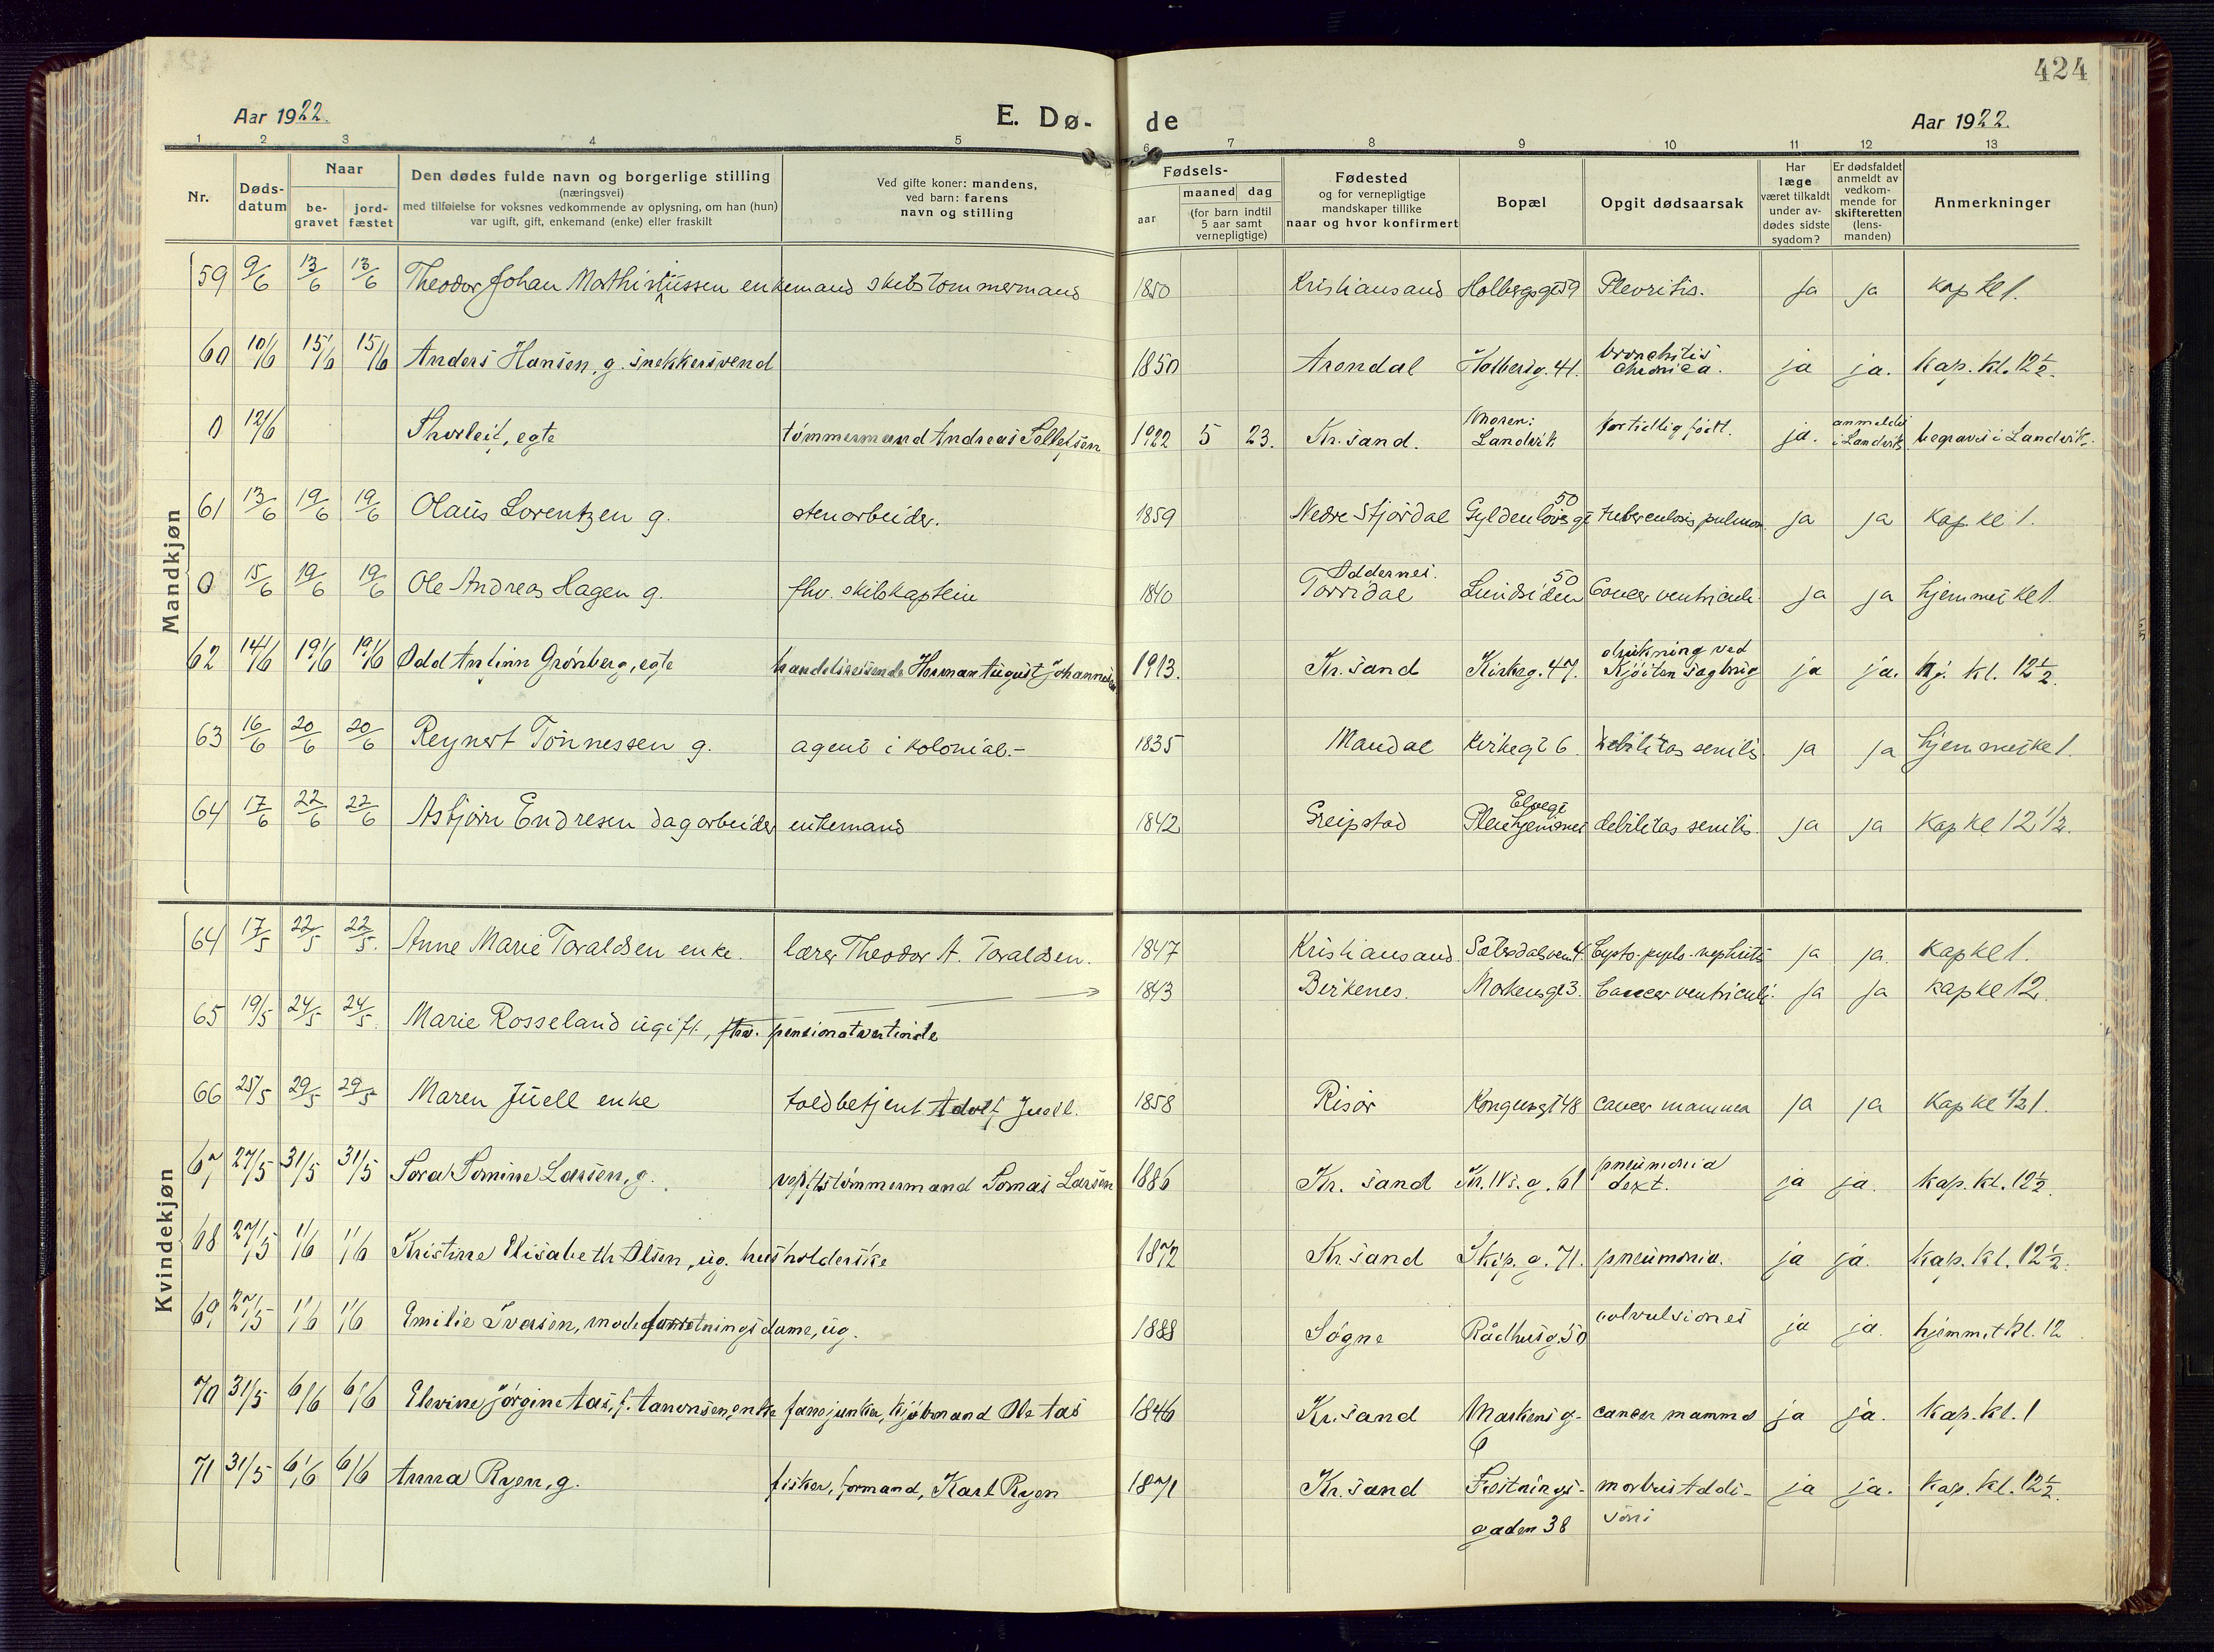 424
Aar 1922. E. Dø- de Aar 1922.
1 2 3 4 5 6 7 8 9 10 11 12 13
Nr. Døds-datum Naar be-gravet jord-fæstet Den dødes fulde navn og borgerlige stilling (næringsvei) med tilføielse for voksnes vedkommende av oplysning, om han (hun) var ugift, gift, enkemand (enke) eller fraskilt Ved gifte koner: mandens, ved barn: farens navn og stilling Fødsels- aar maaned dag (for barn indtil 5 aar samt vernepligtige) Fødested og for vernepligtige mandskaper tillike naar og hvor konfirmert Bopæl Opgit dødsaarsak Har læge været tilkaldt under av-dødes sidste sygdom? Er dødsfaldet anmeldt av vedkom-mende for skifteretten (lens-manden) Anmerkninger
Mandkjøn
59 9/6 13/6 13/6 Theodor Johan Mathiussen enkemand skibstømmermand 1850 Kristiansand Holbergsgt 59 Plevritis. Ja ja kap kl 1.
60 10/6 15/6 15/6 Anders Hansen, g. snekkersvend 1850 Arendal Holbergg. 41. bronchitis chronica. ja ja. kap. kl. 12 1/2.
0 12/6 Thorleif, egte tømmermand Andreas Sellefsen 1922 5 23. Kr.sand. Moren: Landvik for tidlig født. ja. anmeldt i Landvik begraves i Landvik.
61 13/6 19/6 19/6 Olaus Lorentzen g. stenarbeider. 1859 Nedre Stjørdal Gyldenløvesgt 50 tuberculosis pulmon ja ja kap. kl 1.
0 15/6 19/6 19/6 Ole Andreas Hagen g. fhv. skibskaptein 1840 Oddernes. Torridal Lundsiden 50 Cancer ventriculi. ja ja hjemmet kl 1.
62 14/6 19/6 19/6 Odd Anfinn Grønberg, egte handelsreisende Herman August Johannesen 1913. Kr.sand Kirkeg. 47. drukning ved Kjöiten sagbrug ja ja. hj. kl. 12 1/2.
63 16/6 20/6 20/6 Reynert Tønnessen g. agent i kolonial.- 1835 Mandal Kirkegt 6 debilitas senilis. ja ja hjemmet kl 1.
64 17/6 22/6 22/6 Asbjørn Endresen dagarbeider enkemand 1842 Greipstad Elvegt Pleiehjemmet debilitas senilis. ja ja kap kl 12 1/2.
Kvindekjøn
64 17/5 22/5 22/5. Anne Marie Toraldsen enke. lærer Theodor A. Toraldsen. 1847 Kristiansand Sætersdalsvei 4. Cysto-pyelo-nephritis ja ja. kap kl 1.
65 19/5 24/5 24/5. Marie Rosseland ugift, fhv. pensionatvertinde 1843 Birkenes. Markensgt 3. Cancer ventriculi. ja ja kap kl 12.
66 25/5 29/5 29/5 Maren Juell enke toldbetjent Adolf Juell. 1858 Risør Kongensgt 48 cancer mamma ja ja kap kl 1/2 1.
67 27/5 31/5 31/5 Tora Tomine Larsen, g. verftstømmermand Tomas Larsen 1886 Kr. sand Kr. IVs. g. 61 pneumonia dext. ja ja. kap. kl. 12 1/2.
68 27/5 1/6 1/6 Kristine Elisabeth Olsen, ug. husholderske 1872 Kr.sand Skip. g. 71. pneumonia. ja ja. kap. kl. 12 1/2.
69 27/5 1/6 1/6 Emilie Iversen, modeforretningsdame, ug. 1888 Søgne Rådhusg. 50 colvulsiones ja ja. hjemmet kl. 12
70 31/5 6/6 6/6 Elevine Jørgine Aas, f. Aanonsen, enke fanejunker, kjøbmand Ole Aas 1846 Kr.sand Markensg. 6 cancer mamma ja ja. kap. kl. 1
71 31/5 6/6 6/6 Anna Ryen, g. fisker, formand, Karl Ryen 1871 Kr.sand Festnings-gaden 38 morbus Addi-soni ja ja. kap. kl. 12 1/2.